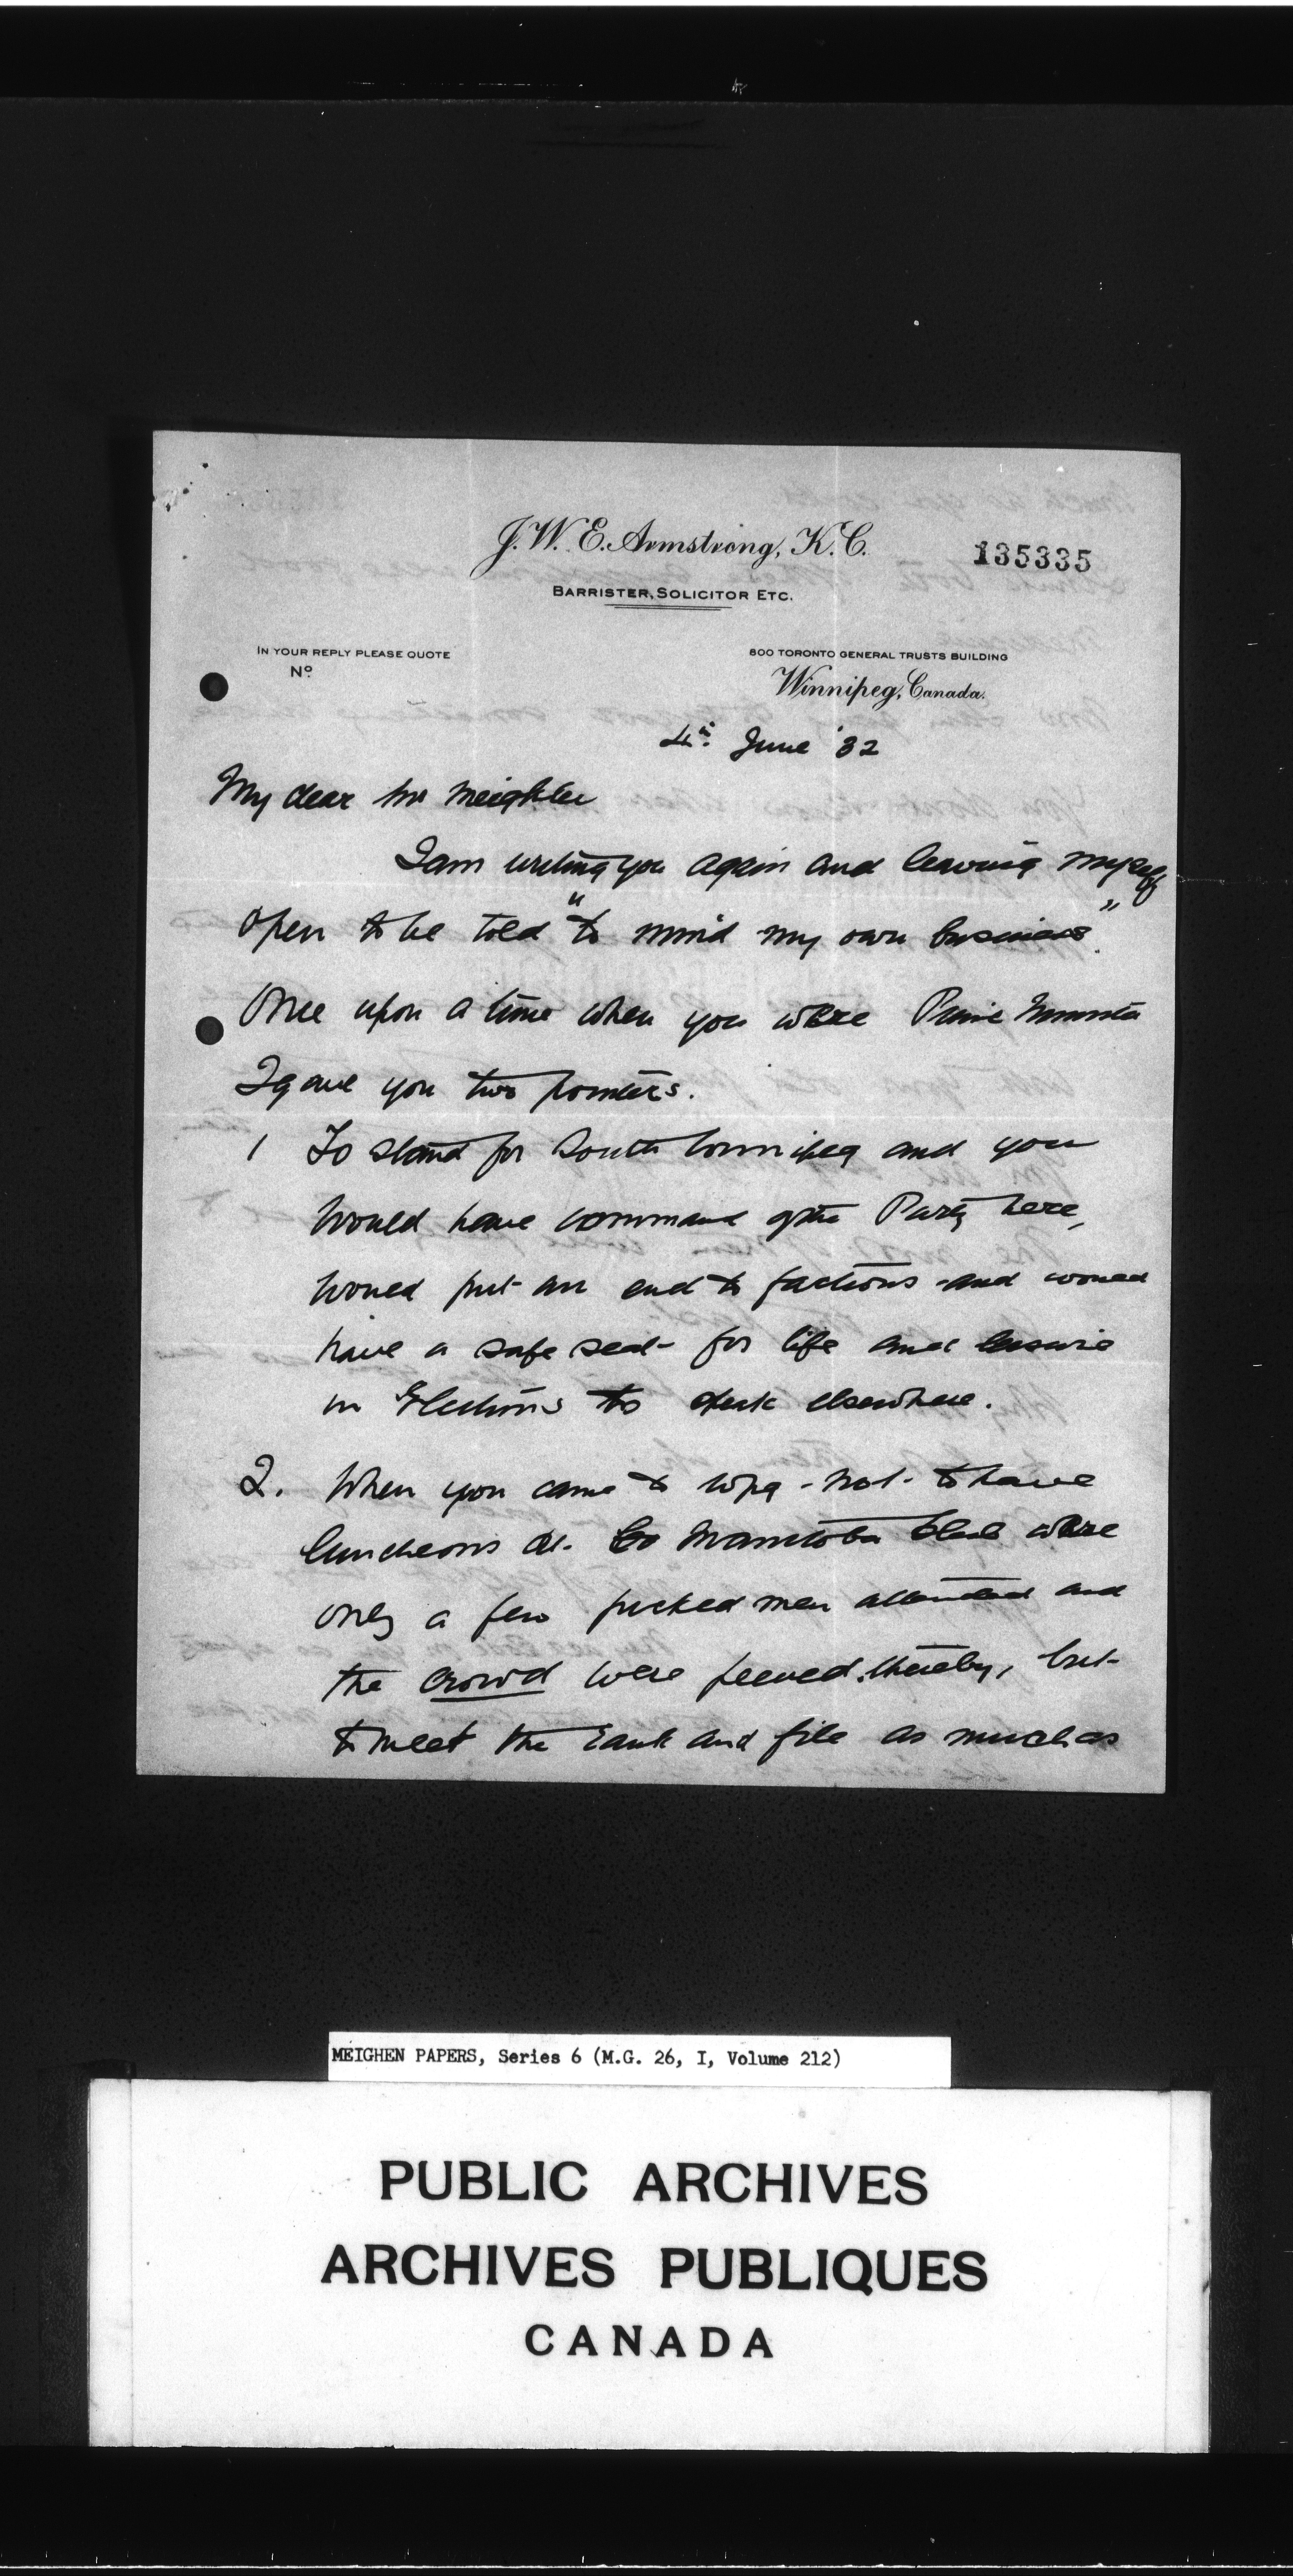 J. W. E. Armstrong, K. C.
135335
BARRISTER, SOLICITOR ETC.
IN YOUR REPLY PLEASE QUOTE
No
800 TORONTO GENERAL TRUSTS BUILDING
Winnipeg, Canada.
4th June '32
My dear Mr Meighen
I am writing you again and leaving myself
open to be told "to mind my own business".
Once upon a time when you were Prime Minister
I gave you two pointers.
1 To stand for South Winnipeg and you
would have command of the Party here,
would put an end to factions and would
have a safe seat for life and leisure
in Elections to speak elsewhere.
2. When you came to Wpg - not to have
luncheons at Manitoba Club where
only a few picked men attended and
the crowd were peeved thereby, but
to meet the rank and file as much as
MEIGHEN PAPERS, Series 6 (M.G. 26, I, Volume 212)
PUBLIC ARCHIVES
ARCHIVES PUBLIQUES
CANADA